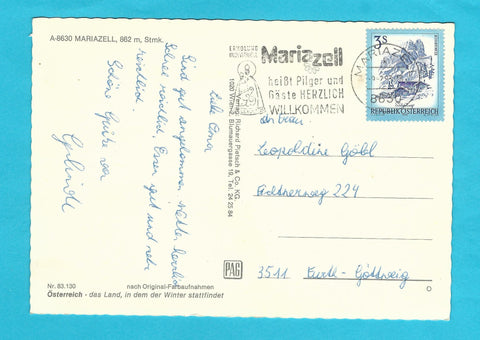 A-8630 MARIAZELL, 862 m, Stmk.
Liebe Oma
Sind gut angekommen. Wetter herrlich
Schnee reichlich. Essen gut und sehr
reichlich.
Schöne Grüße von
Gerlinde
Nr. 83.130 nach Original-Farbaufnahmen
Österreich - das Land, in dem der Winter stattfindet
Richard Pietsch & Co. KG.
1020 Wien, Blumauergasse 19, Tel. 24 25 84
PAG
ERHOLUNG
Mariazell
heißt Pilger und
Gäste HERZLICH
WILLKOMMEN
MARIAZELL
8630
3 S
REPUBLIK ÖSTERREICH
An Frau
Leopoldine Göbl
224
3511 Furth-Göttweig